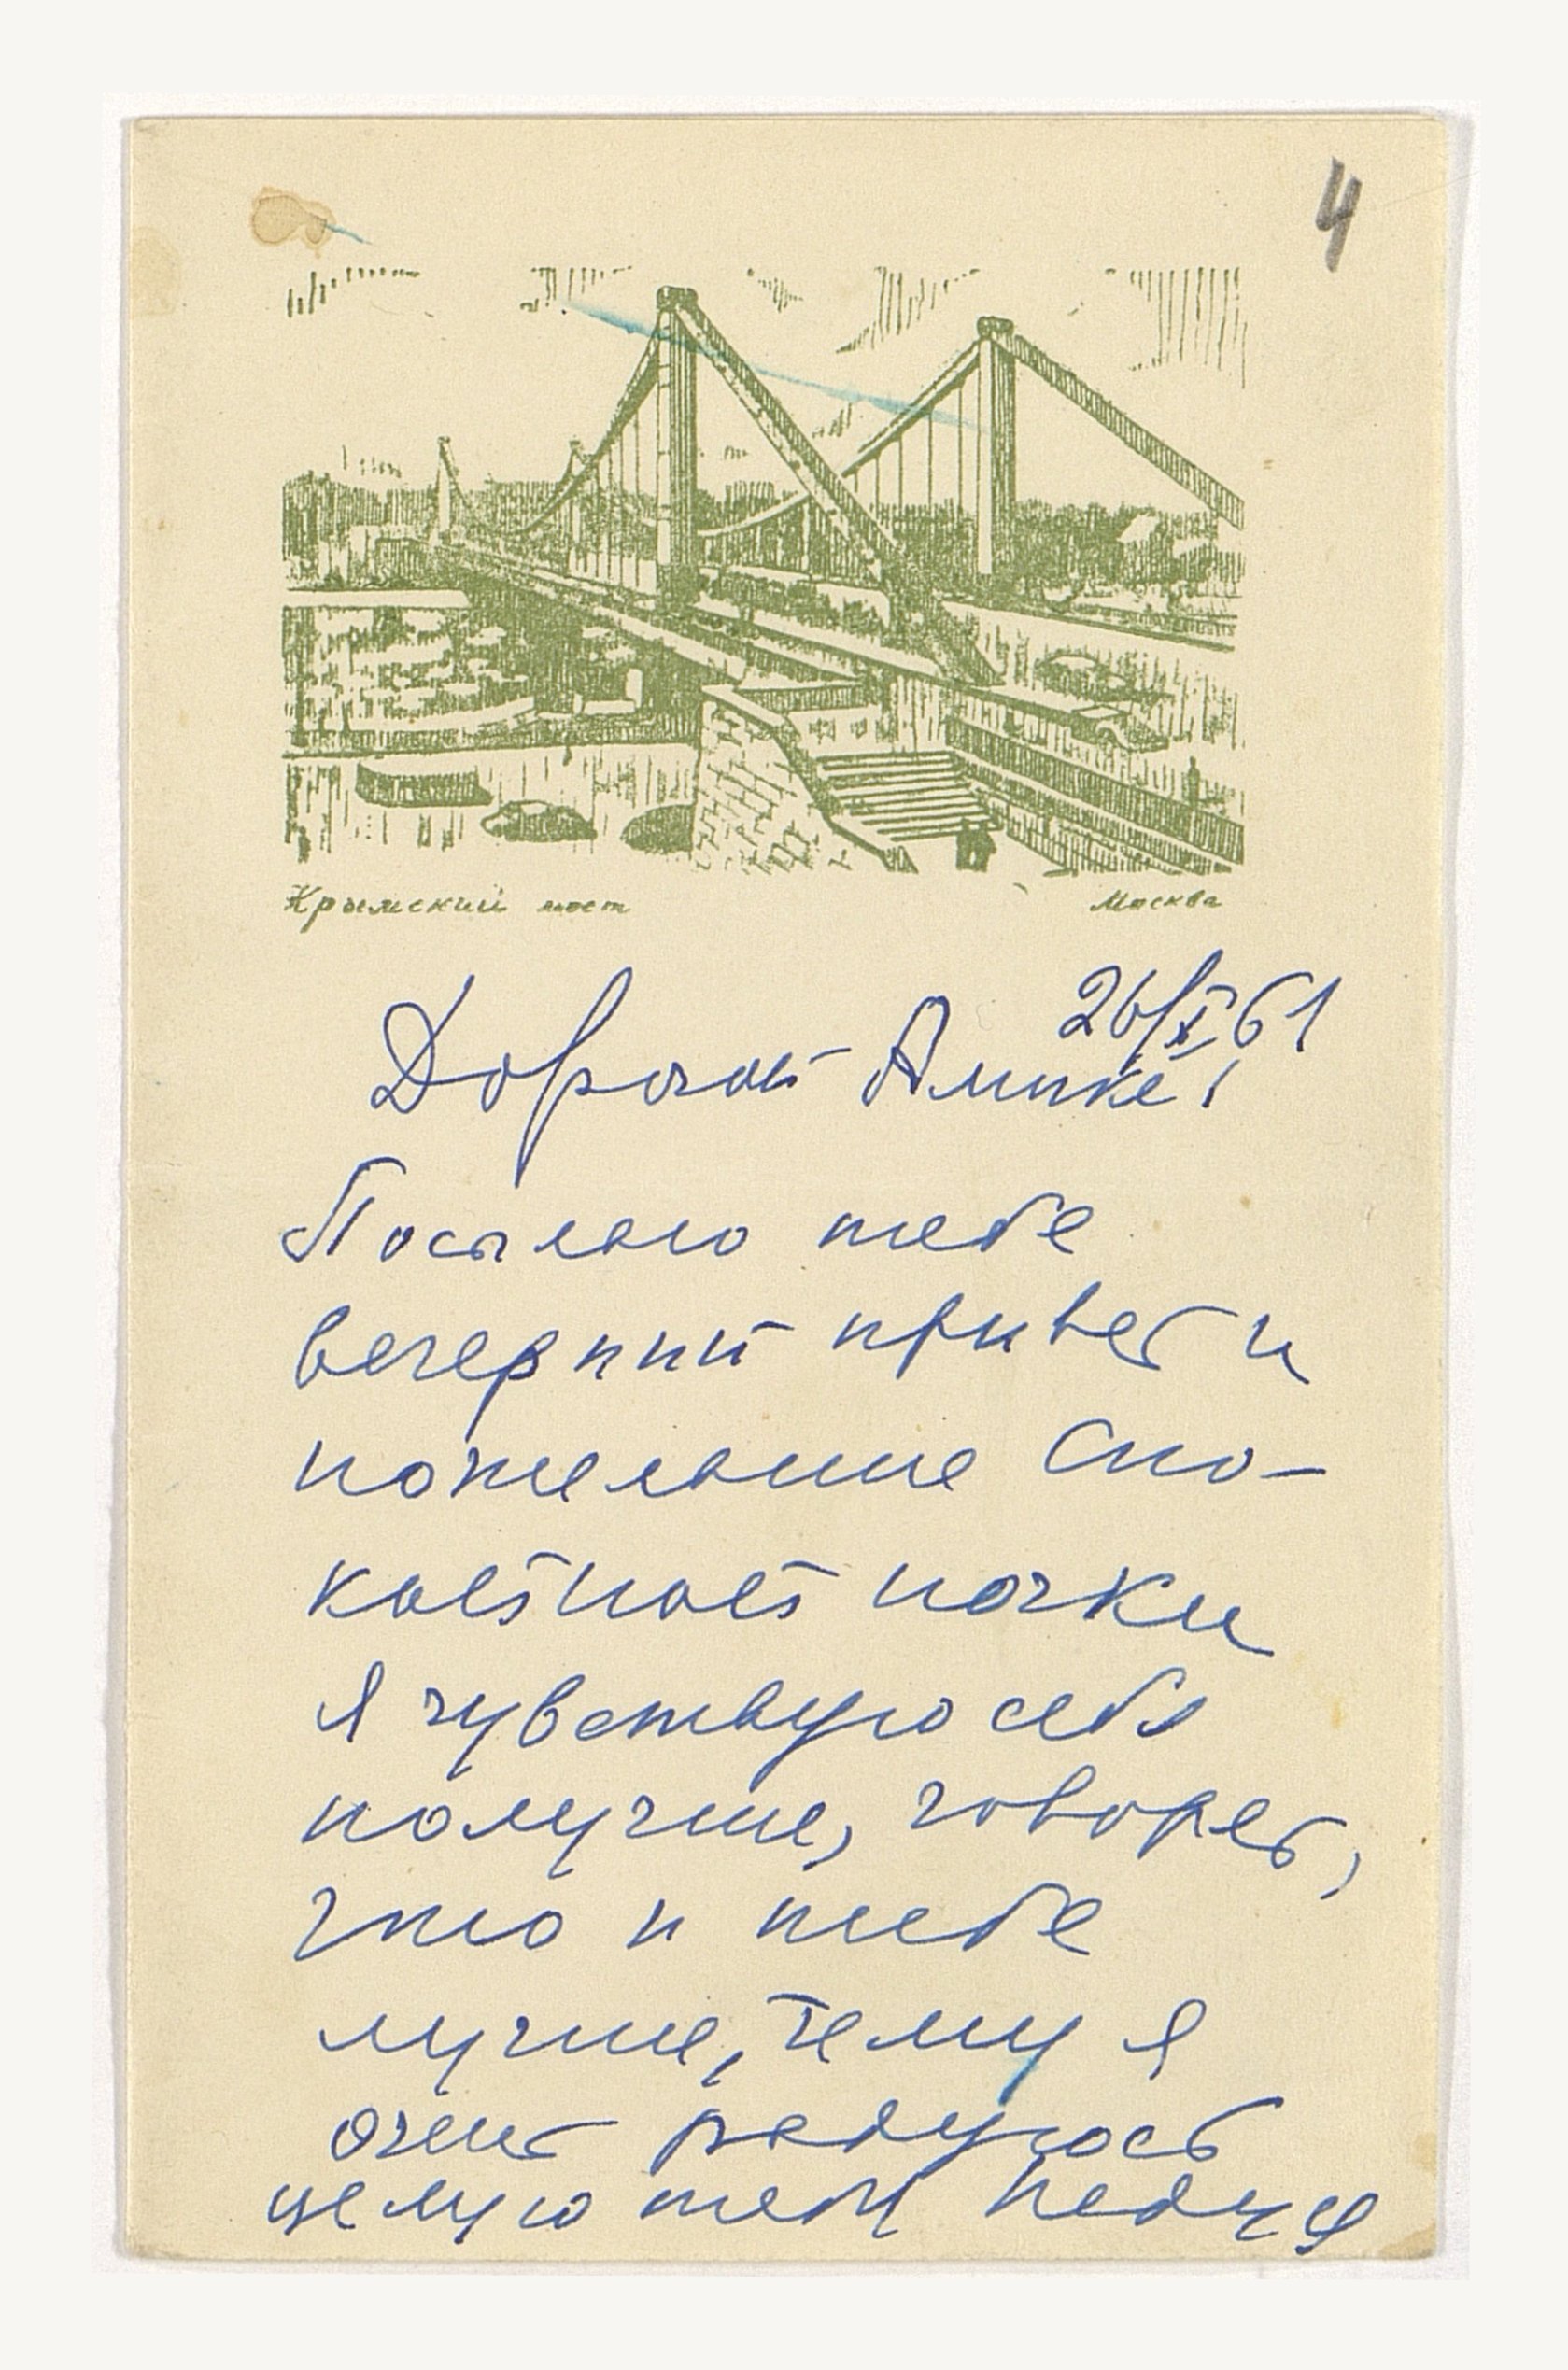 4
Крымский мост Москва
26/X 61
Дорогой Алике!
Посылаю тебе
вечерний привет и
пожелание спо-
койной ночки
Я чувствую себя
получше, говорят,
что и тебе
лучше, чему я
очень радуюсь
целую тебя